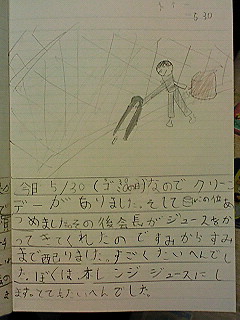 5.30
今日 5/30 (ゴミゼロの日)なので クリーン
デーがありました。そして
つめました。その後会長がジュースをか
ってきてくれたのですみからすみ
まで配りました。すごくたいへんでし
た。ぼくは、オレンジジュースにし
ます。とてもたいへんでした。